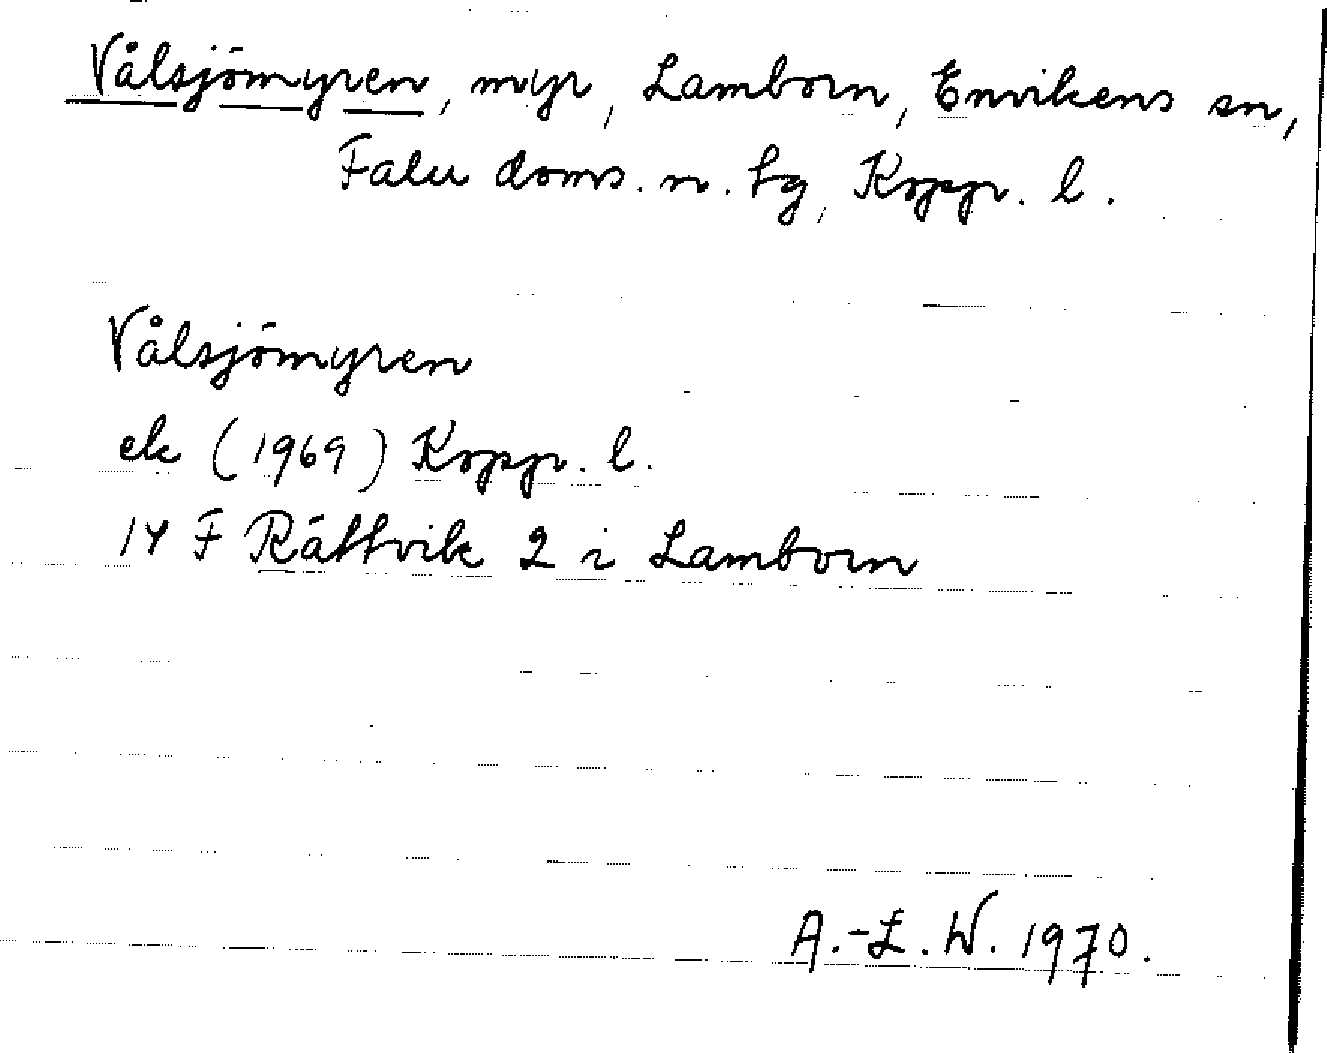 Vålsjömyren, myr, Lamborn, Envikens sn,
Falu doms. n. tg, Koppr. l.
Vålsjömyren
ek (1969) Koppr. l.
14 F Rättvik 2 i Lamborn
A.-L. W. 1970.